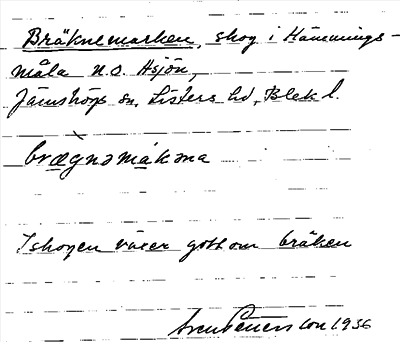 Bräknemarken, skog i Hämmings-
måla n.o. Hsjön,
Jämshögs sn, Listers hd, Blek l.
brægnəmàkəna
I skogen växer gott om bräken
1936